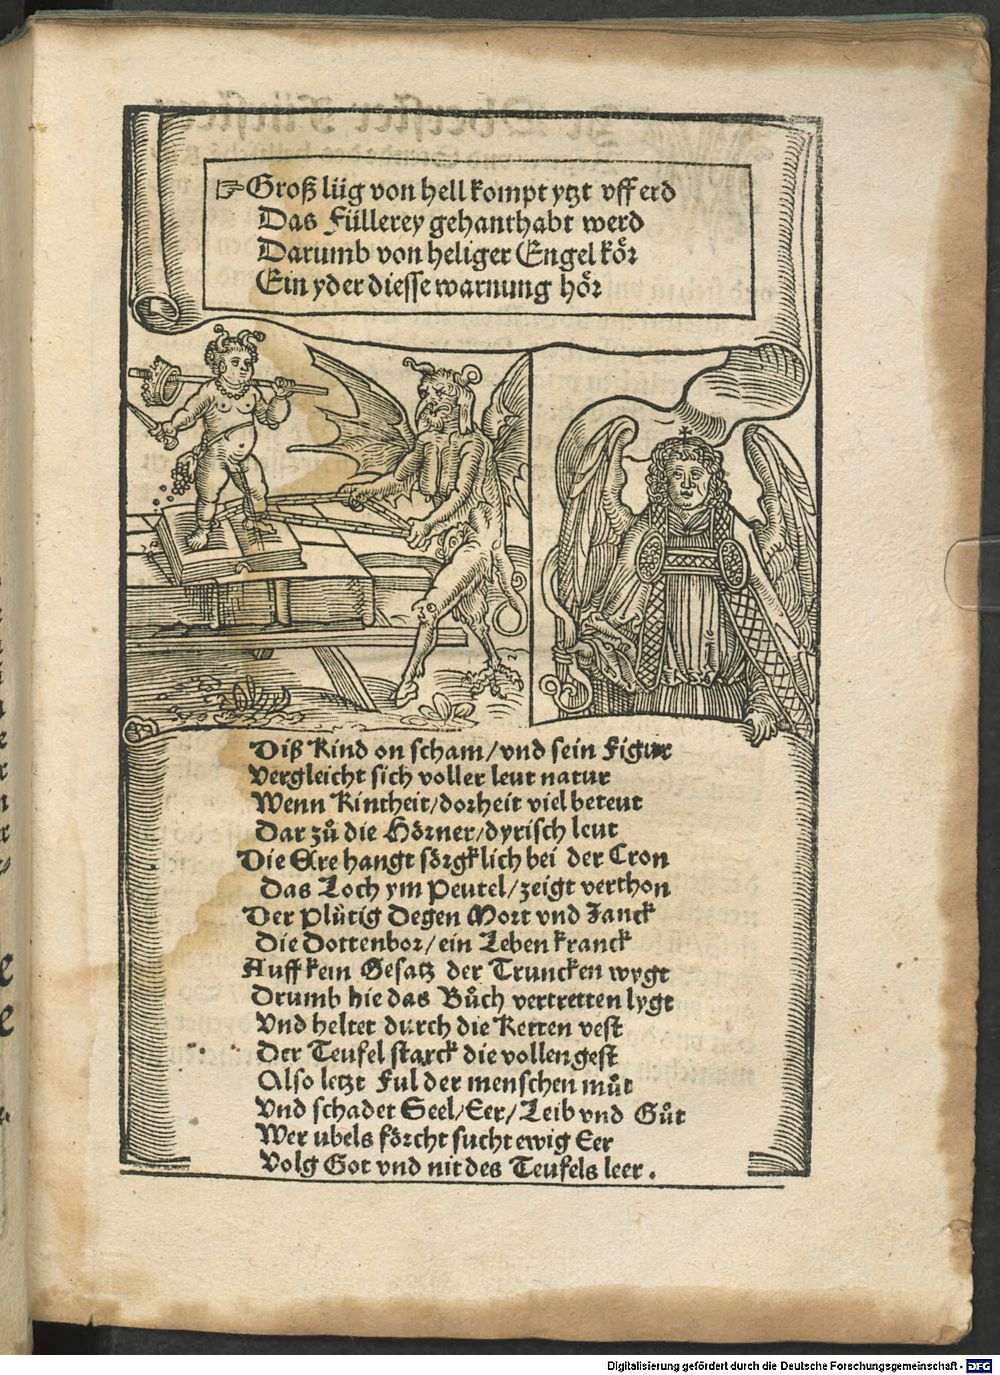 ☞Groß lüg von hell kompt ytzt vff erd
Das Füllerey gehanthabt werd
Darumb von heliger Engel koͤr
Ein yder diesse warnung hoͤr
Diß Kind on scham/vnd sein Figur
Vergleicht sich voller leut natur
Wenn Kintheit/dorheit viel beteut
Dar zuͦ die Hoͤrner/dyrisch leut
Die Ere hangt soͤrgklich bei der Cron
Das Loch ym Peutel/zeigt verthon
Der Pluͤtig Degen Mort vnd Zanck
Die Dottenbor/ein Leben kranck
Auff kein Gesatz der Truncken wygt
Drumb hie das Buͦch vertretten lygt
Vnd heltet durch die Ketten vest
Der Teufel starck die vollen gest
Also letzt Ful der menschen muͦt
Vnd schadet Seel/Eer/Leib vnd Guͦt
Wer ubels foͤrcht sucht ewig Eer
Volg Got vnd nit des Teufels leer.
Digitalisierung gefördert durch die Deutsche Forschungsgemeinschaft - DFG